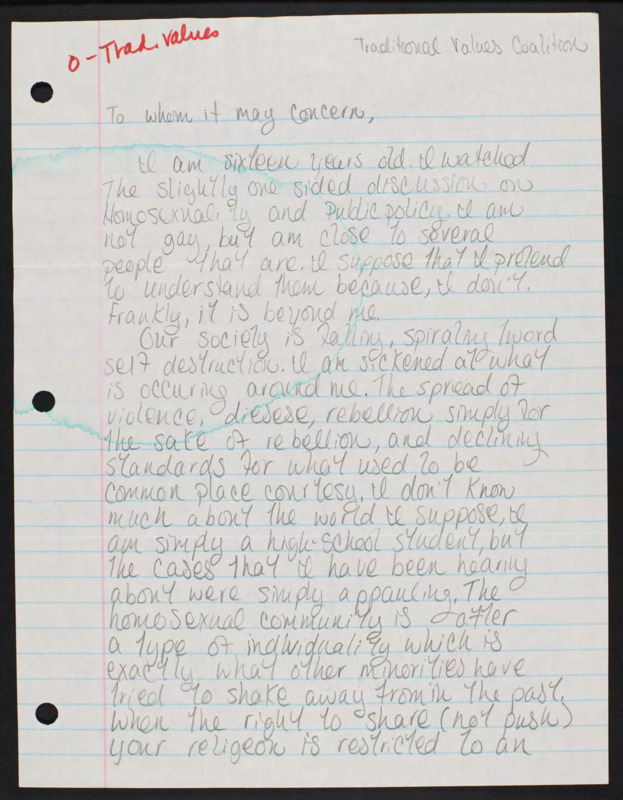 O - Trad. Values
Traditional Values Coalition
To whom it may concern,
I am sixteen years old. I watched
The slightly one sided discussion on
Homosexuality and Public policy. I am
not gay, but am close to several
people that are. I suppose that I pretend
to understand them because, I don't.
Frankly, it is beyond me.
Our society is falling, spiraling tword
self destruction. I am sickened at what
is occuring around me. The spread of
violence, diesese, rebellion simply for
the sake of rebellion, and declining
standards for what used to be
common place courtesy. I don't know
much about the world I suppose, I
am simply a high-school student, but
the cases that I have been hearing
about were simply appauling. The
homosexual community is after
a type of individuality which is
exactly what other minorities have
tried to shake away from in the past.
When the right to share (not push)
your religeon is restricted to an